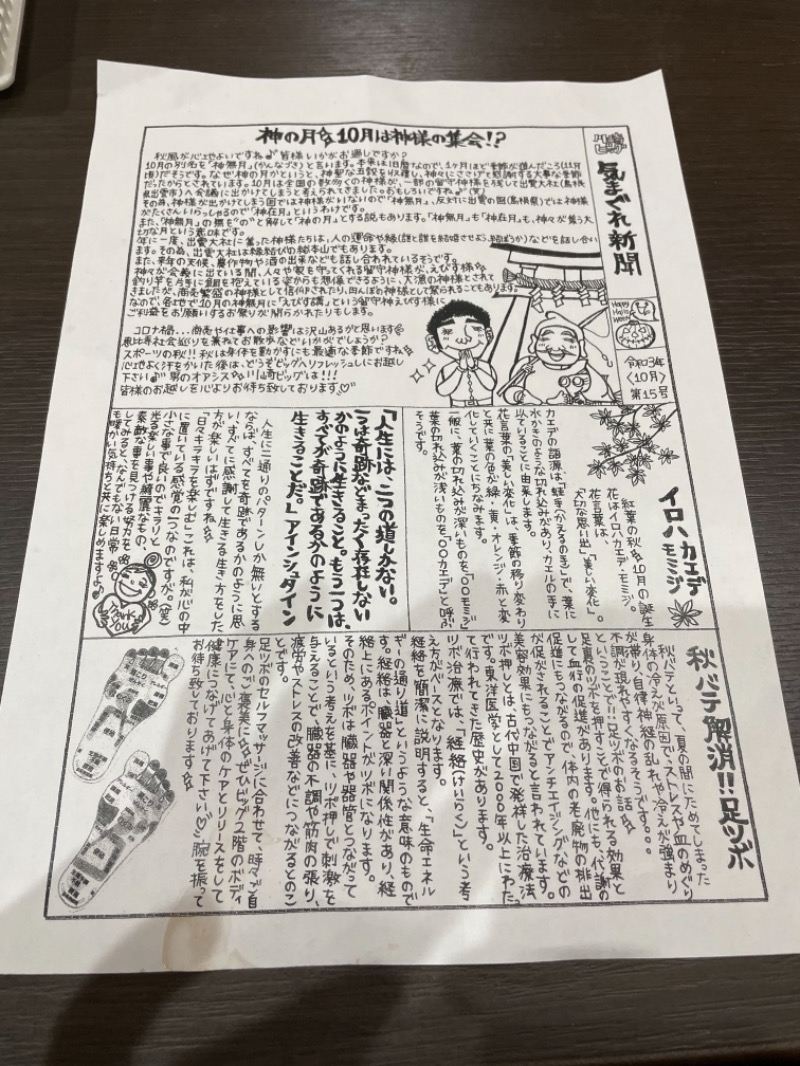 川崎ビッグ
気まぐれ新聞
令和3年
〈10月〉
第15号
Happy
神の月☆10月は神様の集会!?
秋風が心地よいですね♪皆様いかがお過しですか?
10月の別名を「神無月」(かんなづき)と言います。本来は旧暦なので、1ヶ月ほど季節が進んだころ(11月
頃)だそうです。なぜ神の月かというと、神聖な五穀を収穫し、神々にささげて感謝する大事な季節
だったからとされています。10月は全国の数多くの神様が、一部の留守神様を残して出雲大社(島根
県出雲市)へ会議に出かけてしまうと考えられてきました。おもしろいですね♪(笑)
その為、神様が出かけてしまう国では神様がいないので「神無月」、反対に出雲の国(島根県)では神様
がたくさんいらっしゃるので「神在月」というわけです。
また、「神無月」の無を"の"と解して「神の月」とする説もあります。「神無月」も「神在月」も、神々が集う大
切な月という意味です。
年に一度、出雲大社に集った神様たちは、人の運命や縁(誰と誰を結婚させよう、結ぼうか)などを話し合い
ます。その為、出雲大社は縁結びの総本山でもあります。
また、来年の天候、農作物や酒の出来なども話し合われているそうです。
神々が会議に出ている間、人々や家を守ってくれる留守神様が、えびす様☆
釣り竿を片手に鯛を抱えている姿からも想像できるように、大漁の神様とされて
きましたが、商売繁盛の神様として信仰されたり、田んぼの神様として祭られることもあります。
なので、各地で10月の神無月に「えびす講」という留守神えびす様に
ご利益をお願いするお祭りが開らかれたりもします。
コロナ禍...商売や仕事への影響は沢山あるかと思います☆
恵比寿社会巡りを兼ねてお散歩などいかがでしょうか?
スポーツの秋!!秋は身体を動かすにも最適な季節ですね☆
心地よく汗をかいた後は、どうぞビッグへリフレッシュしにお越し
下さい♪"男のオアシス"川崎ビッグは!!!
皆様のお越しを心よりお待ち致しております♡
イロハカエデ
モミジ
紅葉の秋☆10月の誕生
花はイロハカエデ・モミジ。
花言葉は、
「大切な思い出」「美しい変化」。
カエデの語源は、「蛙手(かえるの手)」で、葉に
水かきのような切れ込みがあり、カエルの手に
似ていることに由来します。
花言葉の「美しい変化」は、季節の移り変わり
と共に葉の色が緑・黄・オレンジ・赤と変
化していくことにちなみます。
一般に、葉の切れ込みが深いものを「〇〇モミジ」
葉の切れ込みが浅いものを「〇〇カエデ」と呼ぶ
そうです。
「人生には、二つの道しかない。
一つは奇跡などまったく存在しない
かのように生きること。もう一つは、
すべてが奇跡であるかのように
生きることだ。」アインシュタイン
人生に二通りのパターンしか無いとする
ならば、すべてを奇跡であるかのように思
い、すべてに感謝して生きる生き方をした
方が楽しいはずですね☆
「日々キラキラを楽しむ」これは、私が心の中
に置いている感覚の一つなのですが。(笑)
小さな事で良いのでキラリと
光る楽しい事や綺麗なもの、
素敵な事を見つける努力を
してみると、なんでもない日常
も暖かい気持ちと共に楽しめますよ♪
Thank
You
秋バテ解消!!足ツボ
秋バテといって、夏の間にためてしまった
身体の冷えが原因で、ストレスや血のめぐり
が滞り、自律神経の乱れや冷えが強まり
不調が現れやすくなるそうです。。。
ということで!!足ツボのお話☆
足裏のツボを押すことで得られる効果と
して血行の促進があります。他にも、代謝の
促進にもつながるので、体内の老廃物の排出
が促がされることでアンチエイジングなどの
美容効果にもつながると言われています。
ツボ押しとは、古代中国で発祥した治療法
です。東洋医学として2000年以上にわた
って行われてきた歴史があります。
ツボ治療では、「経絡(けいらく)」という考
え方がベースとなります。
経絡を簡潔に説明すると、「生命エネル
ギーの通り道」というような意味のもので
す。経絡は臓器と深い関係性があり、経
絡上にあるポイントがツボになります。
そのため、ツボは臓器や器管とつながって
いるという考えを基に、ツボ押しで刺激を
与えることで、臓器の不調や筋肉の張り、
疲労やストレスの改善などにつながるとのこ
とです。
足ツボのセルフマッサージに合わせて、時々ご自
身へのご褒美に☆ぜひビッグ2階のボディ
ケアにて、心と身体のケアとリリースをして
健康につなげてあげて下さい♡腕を振って
お待ち致しております☆